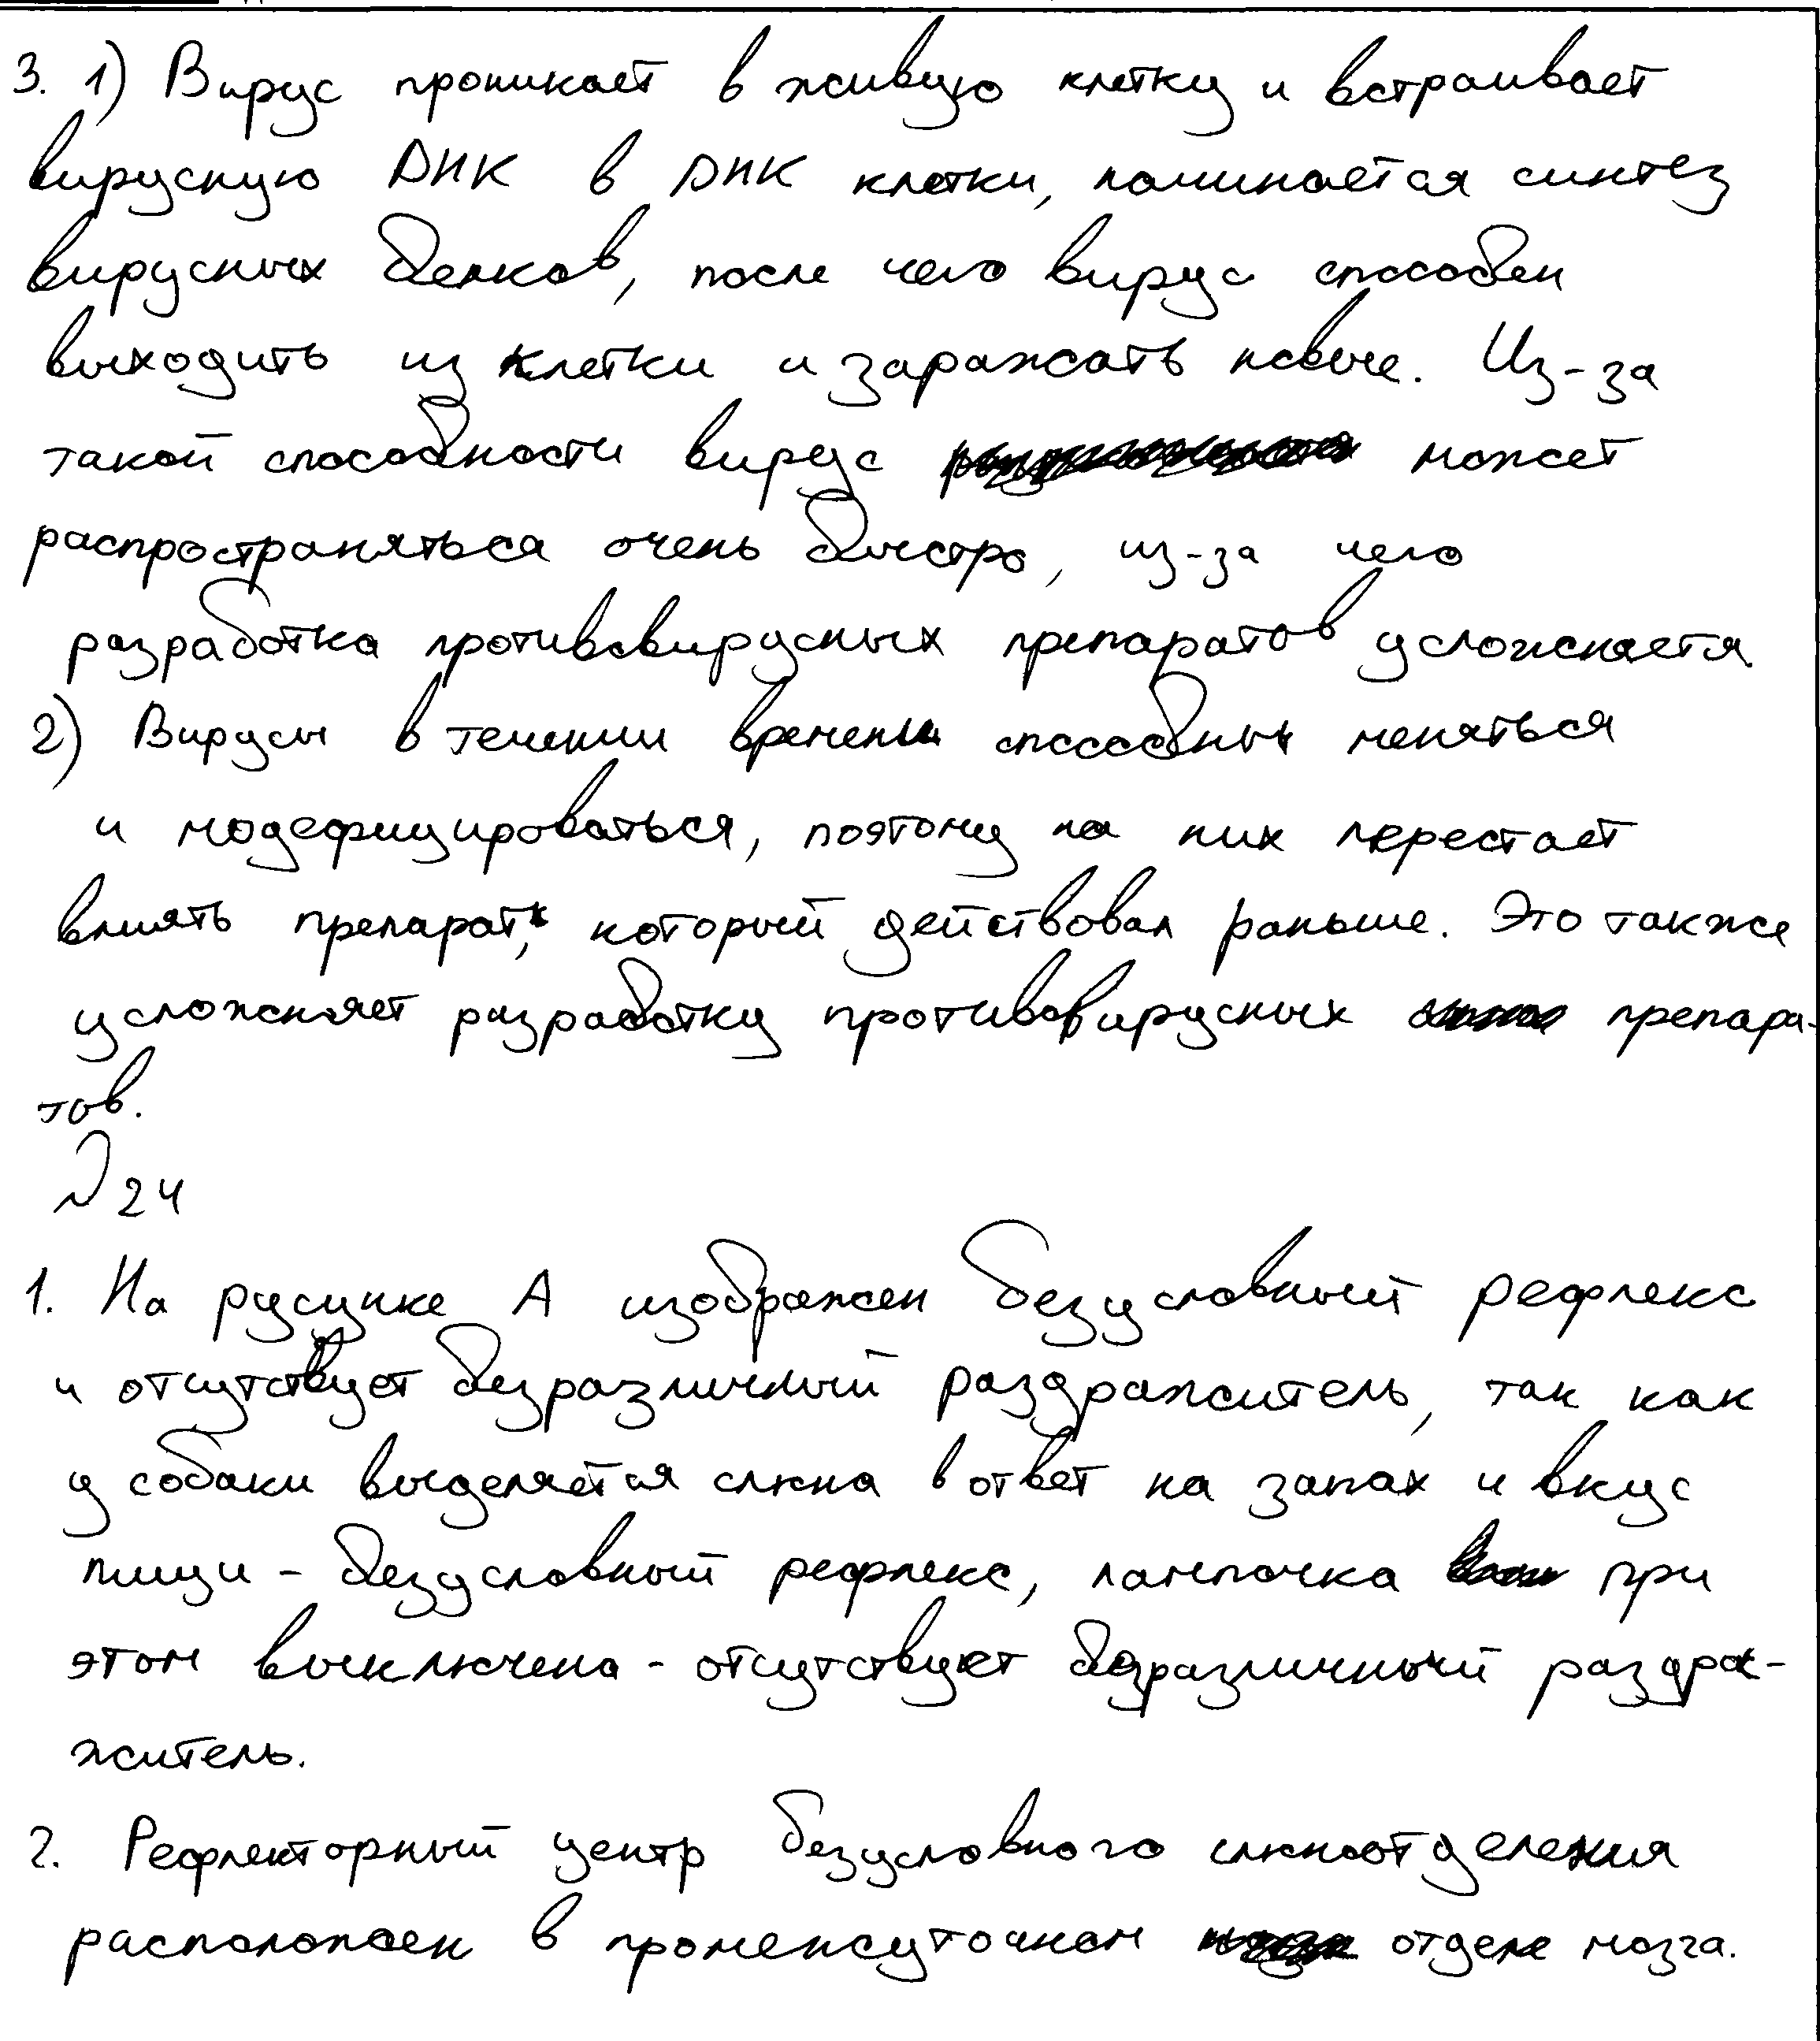 3. 1) Вирус проникает в живую клетку и встраивает
вирусную ДНК в ДНК клетки, начинается синтез
вирусных белков, после чего вирус способен
выходить из клетки и заражать новые. Из-за
такой способности вирус может
распространяться очень быстро, из-за чего
разработка противовирусных препаратов усложняется.
2) Вирусы в течении времени способны меняться
и модефицироваться, поэтому на них перестает
влиять препарат, который действовал раньше. Это также
усложняет разработку противовирусных препара-
тов.
№24
1. На русунке А изображен безусловный рефлекс
и отсутствует безразличный раздражитель, так как
у собаки выделяется слюна в ответ на запах и вкус
пищи - безусловный рефлекс, лампочка при
этом выключена - отсутствует безразличный раздра-
житель.
2. Рефлекторный центр безусловного слюноотделения
расположен в промежуточном отделе мозга.